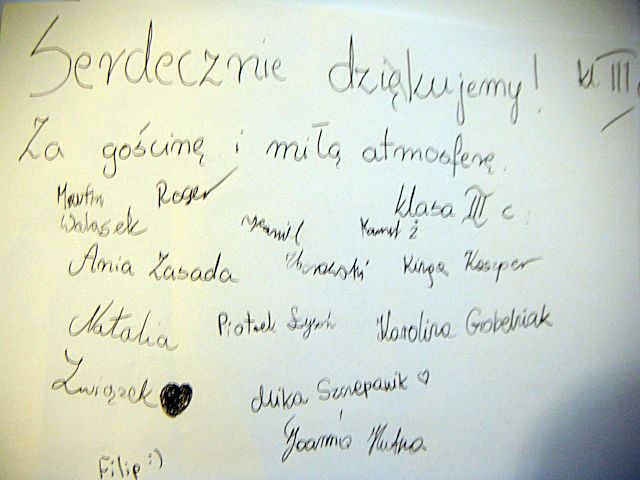 Serdecznie dziękujemy! kl III
Za gościnę i miłą atmosferę.
Martin Roger
klasa III c
Walasek Kamil Kamil Ż
Ania Zasada Kinga Kacper
Natalia Piotrek Karolina Grobelniak
Związek
Mika Szczepanik
Joanna Kutna
Filip :)